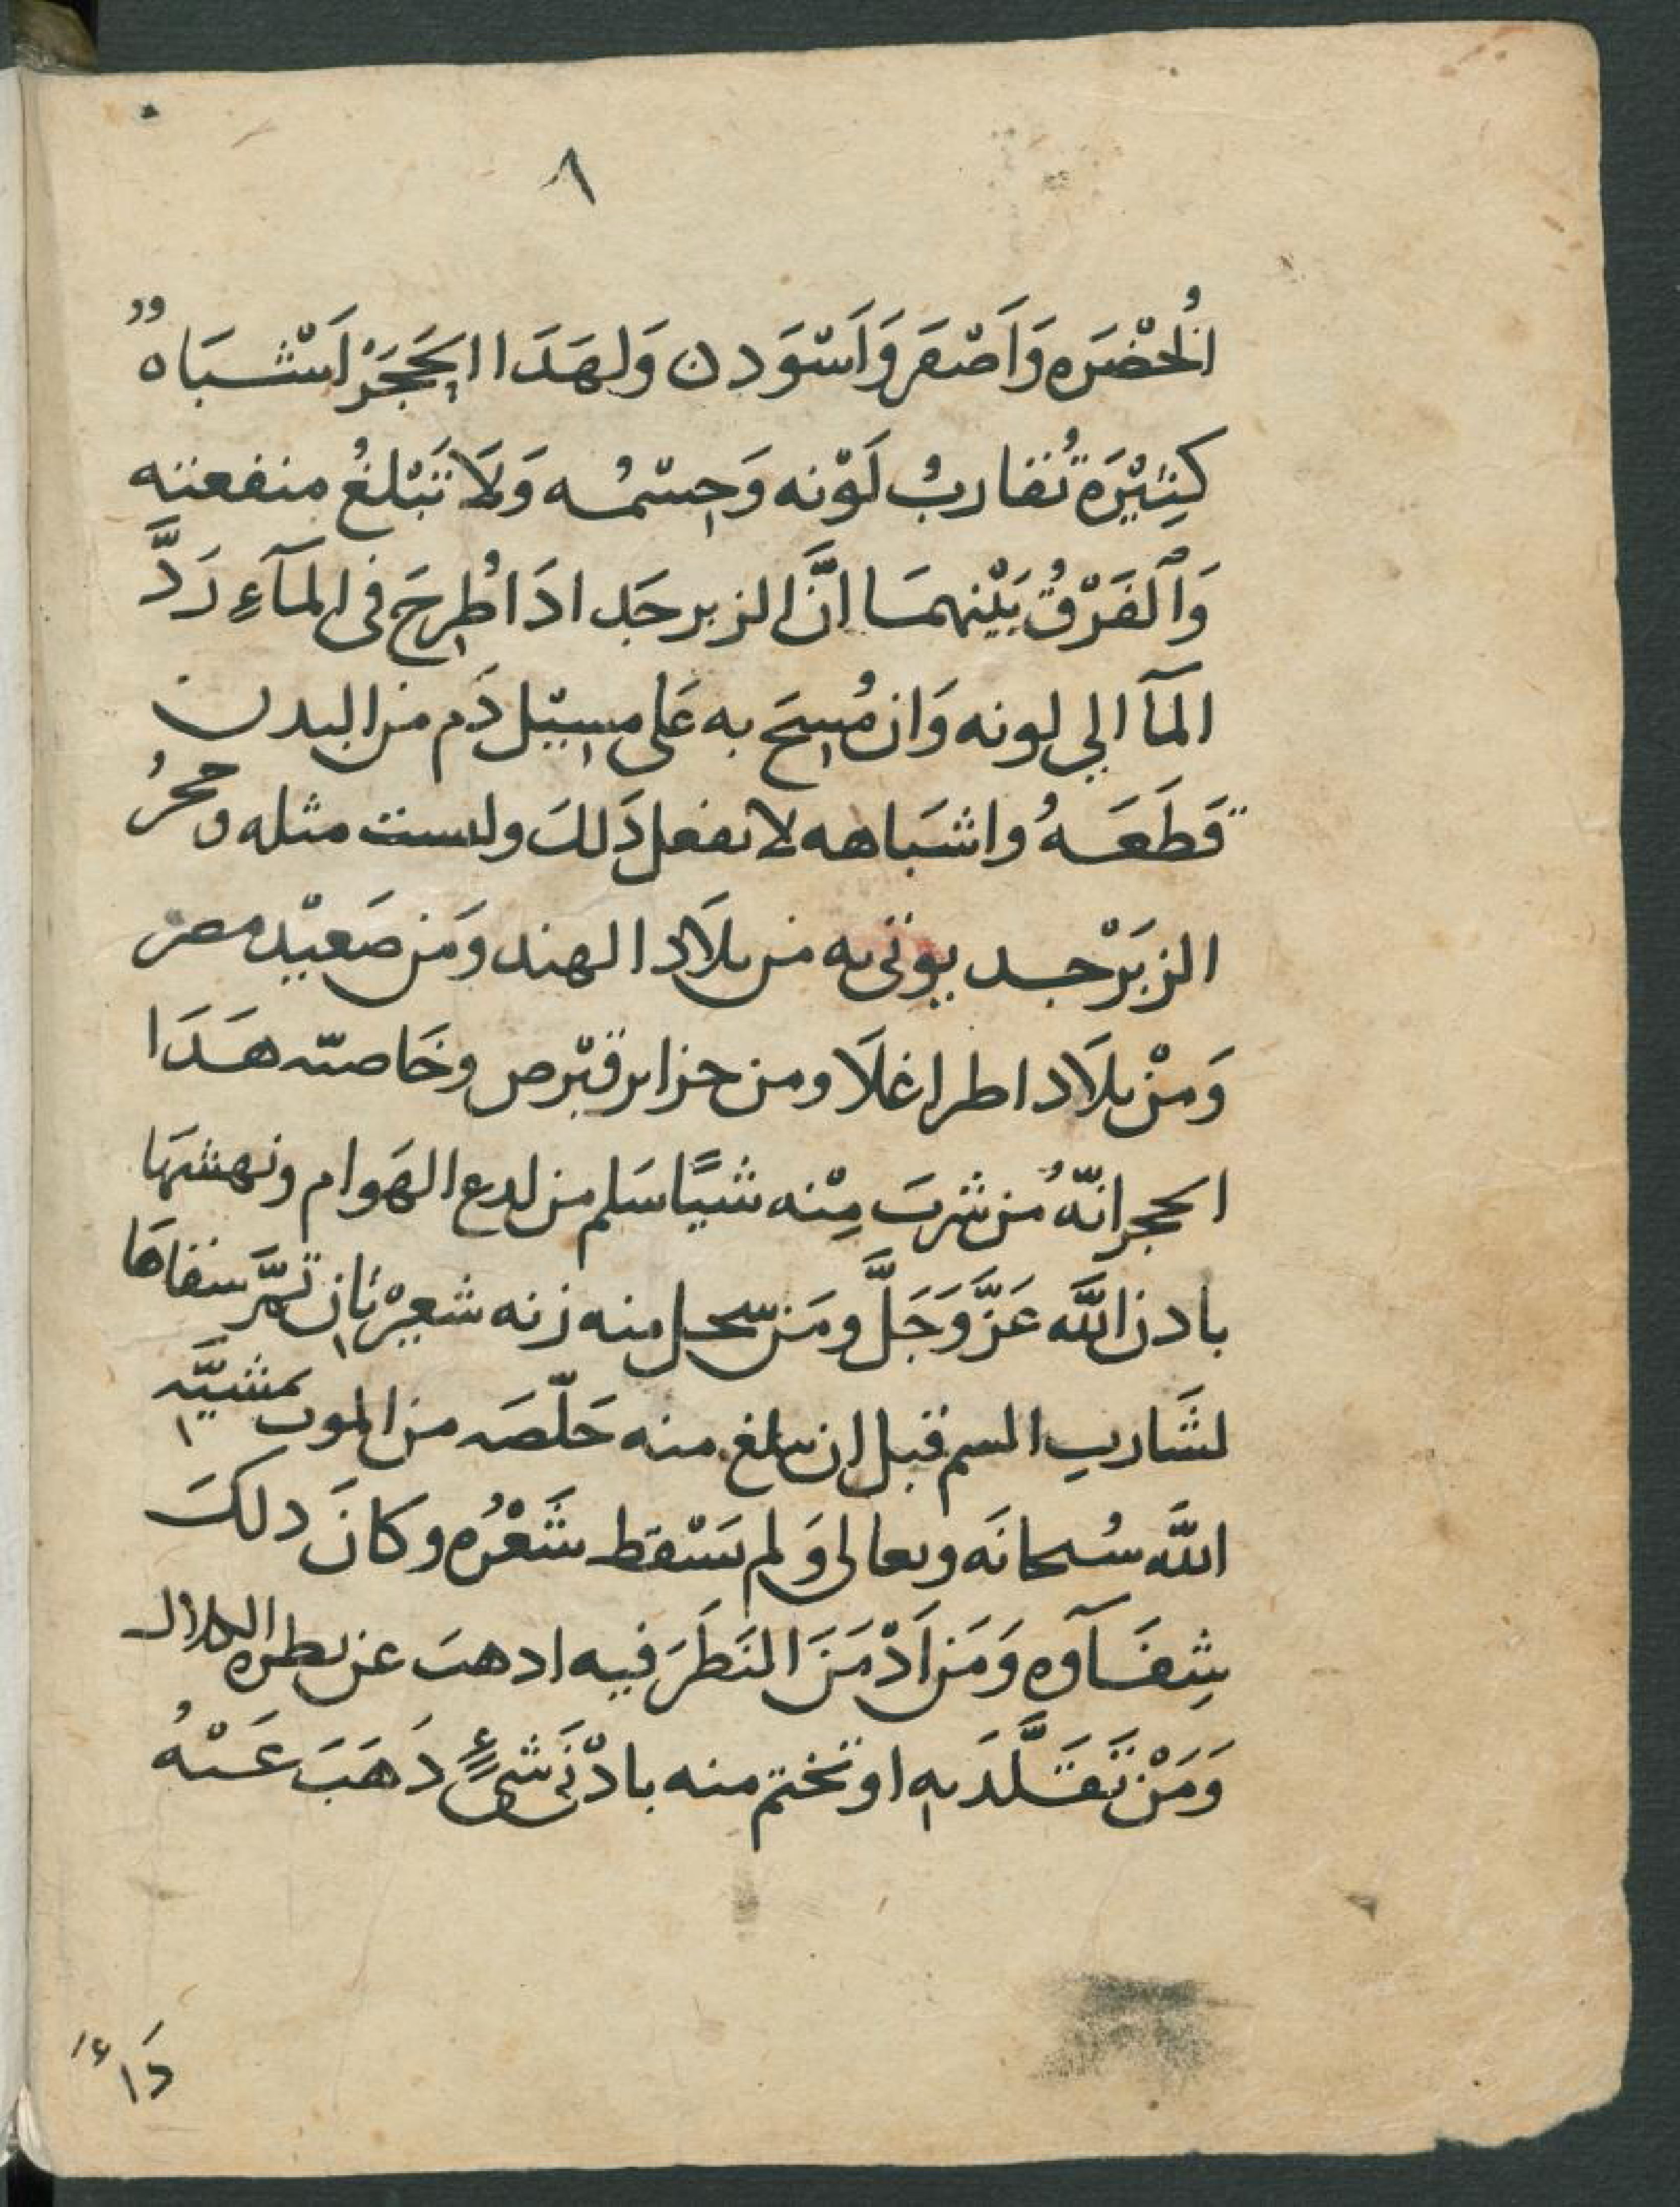 ٨
الخُضْرَه وَاَصْفَر وَاَسْوَدن وَلهَدَا الحَجَرْ اَشْبَاهٌ
كثِيْرَة تُقَاربُ لَوْنه وَجِسْمُه وَلَا تَبْلغُ منفعته
وَالفَرْقُ بَيْنهمَا انَّ الزبرجَد ادَا طُرِحَ فى المآءِ رَدَّ
المآ الي لونه وَان مُسِحَ به عَلى مسِيْل دَم من البدن
قَطَعَهُ واشبَاهه لا يفعل دَلكَ وليست مثله وحجرُ
الزبَرْجد يوتى به من بلَاد الهند وَمن صَعيْد مصر
وَمنْ بلَاد اطراغلَا ومن جزاير قبْرص وخَاصته هَدَا
الحجر انّهُ من شربَ مِنْه شيًا سَلم من لدع الهَوام ونهشهَا
بادن اللَّه عَزَّ وَجَلَّ ومَن سحل منه زنه شعِيْرتان ثمَّ سقاهَا
لشَاربِ السم قبل ان يبلغ منه خَلّصَه من الموت بمشيَّه
اللَّه سُبحانَه وتعالى وَلم يَسْقط شَعْرُه وكَانَ دلكَ
شِفَآوه وَمَن اَدْمَنَ النَظَرَ فيه ادهبَ عن بطره الكلال
وَمَنْ تَقَلَّدَ بِه او تختم منه بادْنَى شىءٍ دَهَبَ عَنْهُ
دَا
١٤